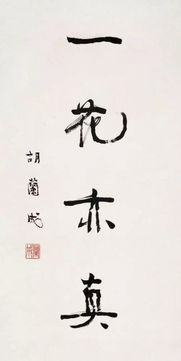 一花亦真
胡蘭成